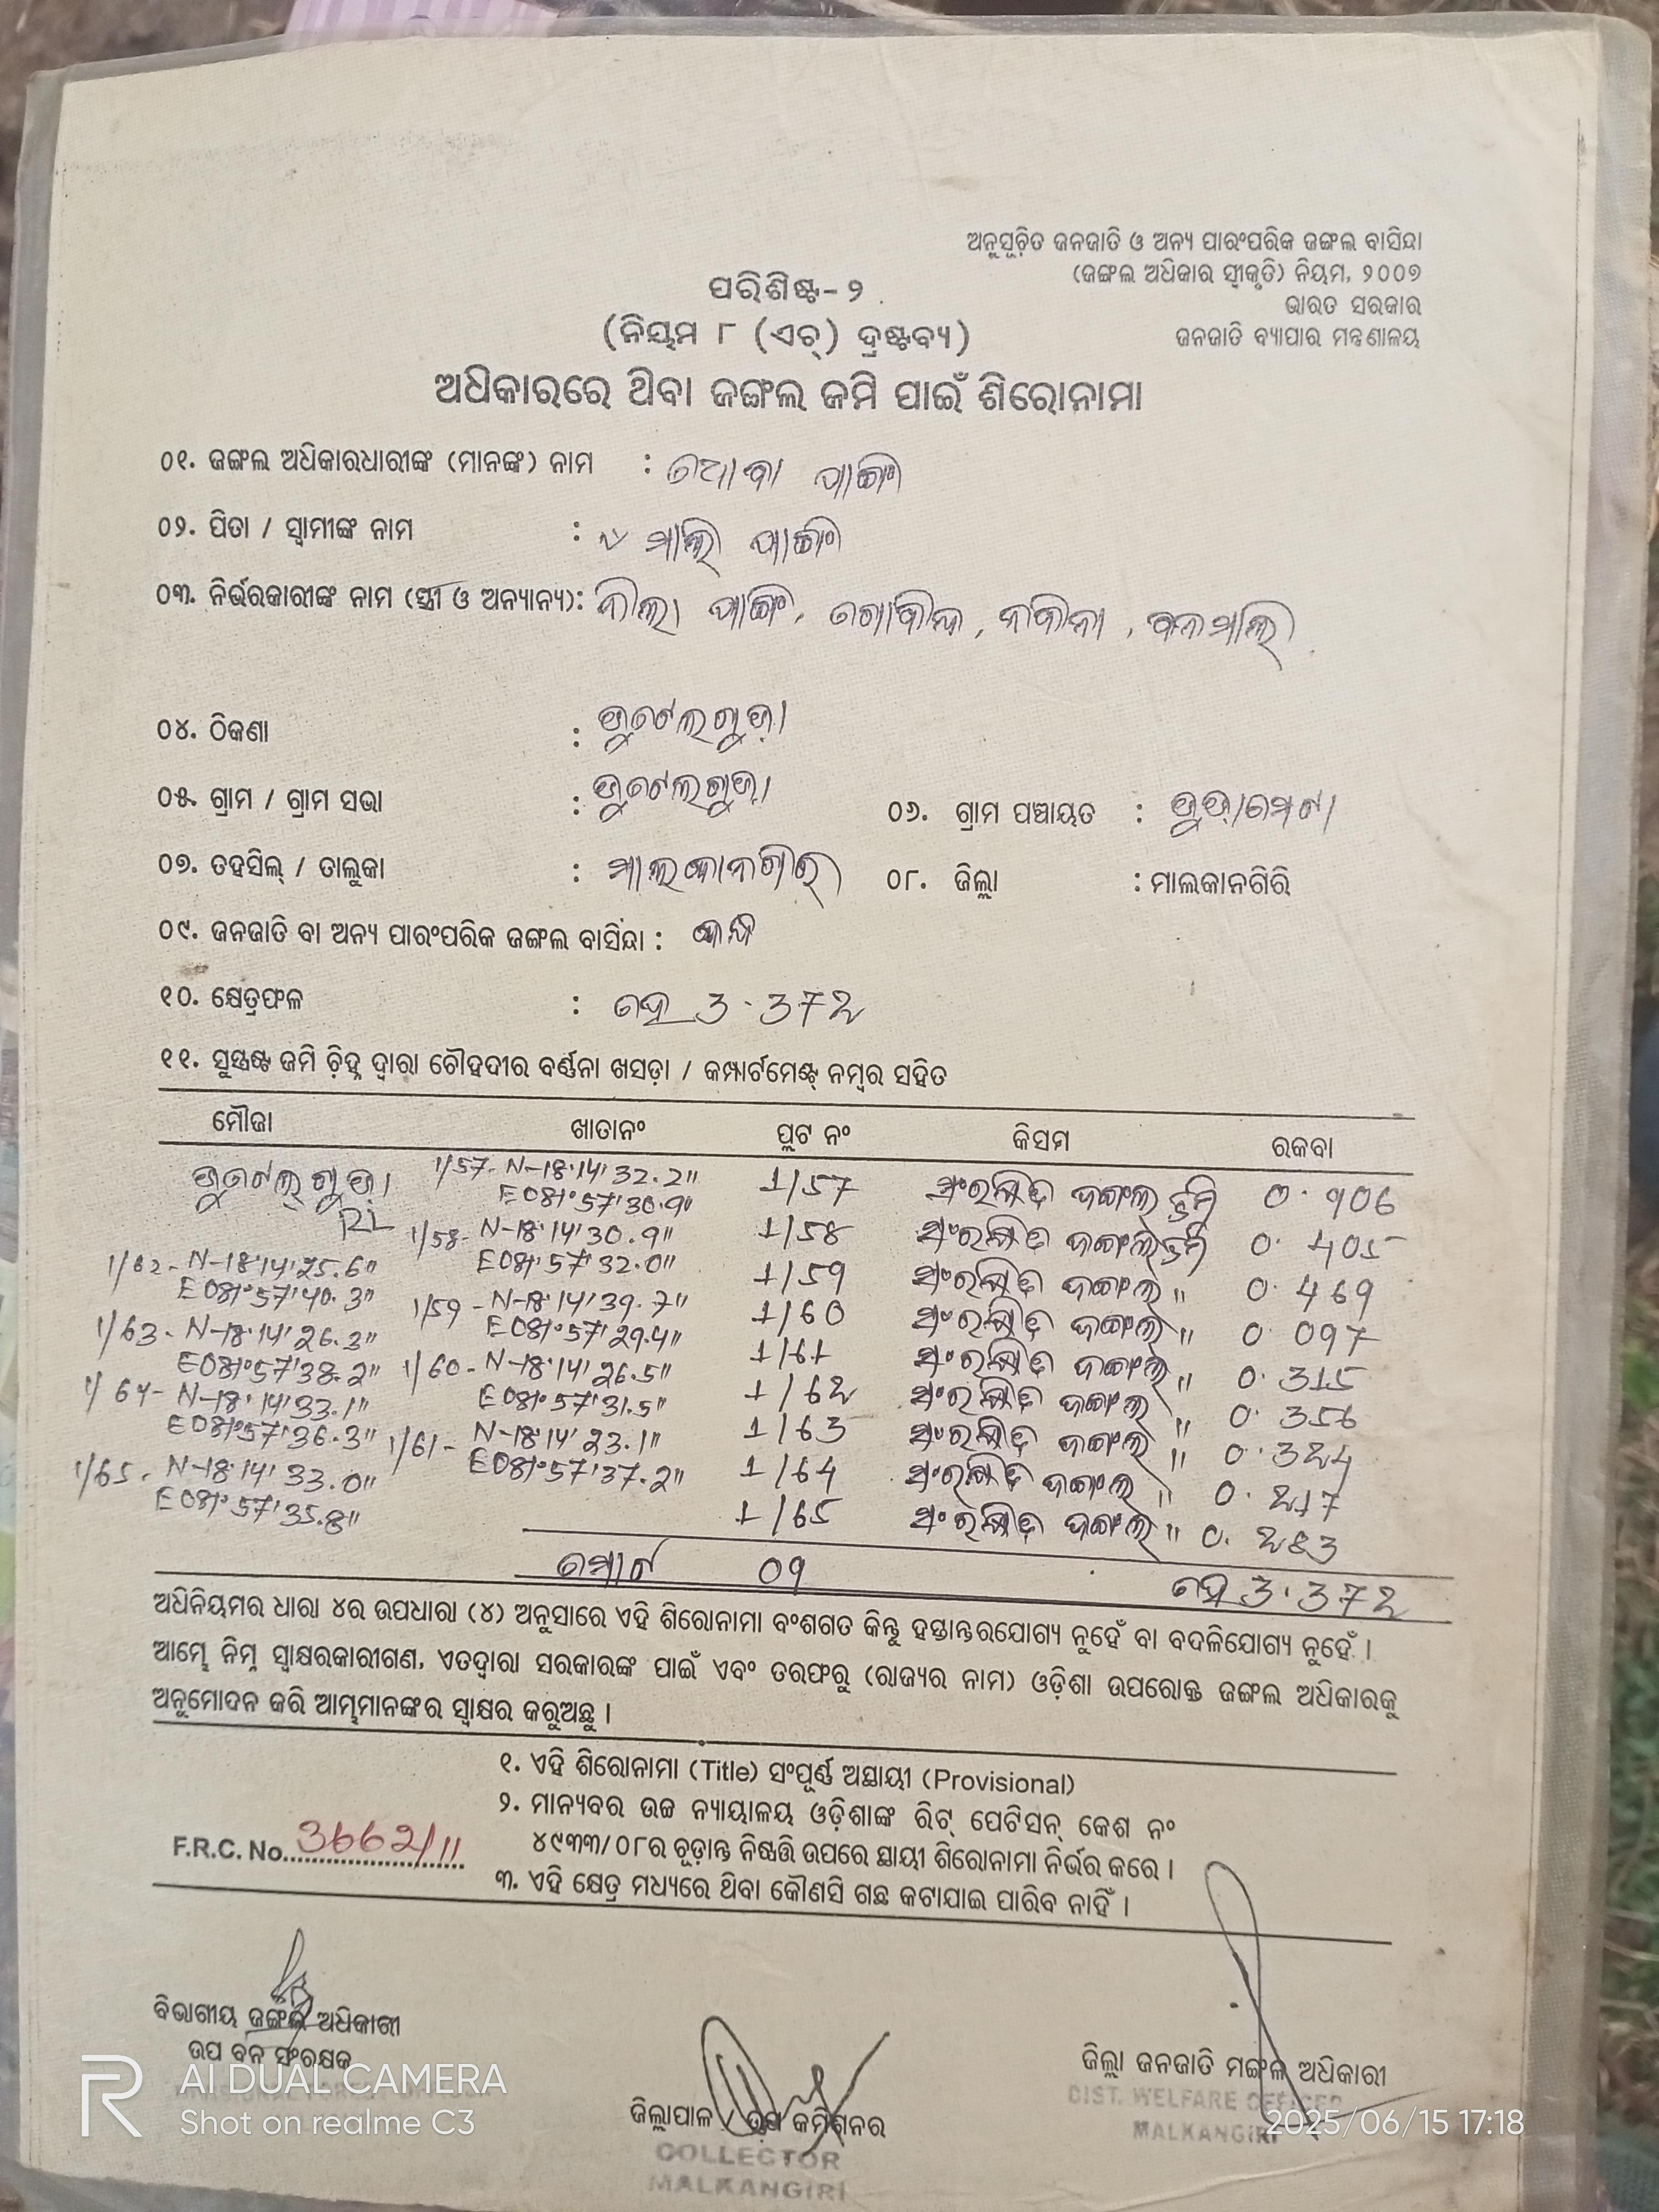 ଅନୁସୂଚିତ ଜନଜାତି ଓ ଅନ୍ୟ ପାରଂପରିକ ଜଙ୍ଗଲ ବାସିନ୍ଦା
(ଜଙ୍ଗଲ ଅଧିକାର ସ୍ୱୀକୃତି) ନିୟମ, ୨୦୦୭
ଭାରତ ସରକାର
ଜନଜାତି ବ୍ୟାପାର ମନ୍ତ୍ରଣାଳୟ
ପରିଶିଷ୍ଟ-୨
(ନିୟମ ୮ (ଏଚ୍) ଦ୍ରଷ୍ଟବ୍ୟ)
ଅଧିକାରରେ ଥିବା ଜଙ୍ଗଲ ଜମି ପାଇଁ ଶିରୋନାମା
୦୧. ଜଙ୍ଗଲ ଅଧିକାରଧାରୀଙ୍କ (ମାନଙ୍କ) ନାମ :
୦୨. ପିତା / ସ୍ୱାମୀଙ୍କ ନାମ : ମାଲି
୦୩. ନିର୍ଭରକାରୀଙ୍କ ନାମ (ସ୍ତ୍ରୀ ଓ ଅନ୍ୟାନ୍ୟ):
୦୪. ଠିକଣା :
୦୫. ଗ୍ରାମ / ଗ୍ରାମ ସଭା :
୦୬. ଗ୍ରାମ ପଞ୍ଚାୟତ :
୦୭. ତହସିଲ୍ / ତାଲୁକା : ମାଲକାନଗିରି
୦୮. ଜିଲ୍ଲା : ମାଲକାନଗିରି
୦୯. ଜନଜାତି ବା ଅନ୍ୟ ପାରଂପରିକ ଜଙ୍ଗଲ ବାସିନ୍ଦା :
୧୦. କ୍ଷେତ୍ରଫଳ : ହେ 3.372
୧୧. ସୁସ୍ପଷ୍ଟ ଜମି ଚିହ୍ନ ଦ୍ୱାରା ଚୌହଦୀର ବର୍ଣ୍ଣନା ଖସଡ଼ା / କମ୍ପାର୍ଟମେଣ୍ଟ୍ ନମ୍ବର ସହିତ
ମୌଜା ଖାତାନଂ ପ୍ଲଟ ନଂ କିସମ ରକବା
1/57- N-18°14'32.2" 1/57 ସଂରକ୍ଷିତ ଜଙ୍ଗଲ ଭୂମି 0.906
E081°57'30.9"
1/58- N-18°14'30.9" 1/58 ସଂରକ୍ଷିତ ଜଙ୍ଗଲ ଭୂମି 0.405
E081°57'32.0"
1/62- N-18°14'25.6" 1/59 ସଂରକ୍ଷିତ ଜଙ୍ଗଲ " 0.469
E081°57'40.3"
1/59- N-18°14'39.7" 1/60 ସଂରକ୍ଷିତ ଜଙ୍ଗଲ " 0.097
E081°57'29.4"
1/63- N-18°14'26.3" 1/61 ସଂରକ୍ଷିତ ଜଙ୍ଗଲ " 0.315
E081°57'38.2"
1/60- N-18°14'26.5" 1/62 ସଂରକ୍ଷିତ ଜଙ୍ଗଲ " 0.356
E081°57'31.5"
1/64- N-18°14'33.1" 1/63 ସଂରକ୍ଷିତ ଜଙ୍ଗଲ " 0.324
E081°57'36.3"
1/61- N-18°14'23.1" 1/64 ସଂରକ୍ଷିତ ଜଙ୍ଗଲ " 0.217
E081°57'37.2"
1/65- N-18°14'33.0" 1/65 ସଂରକ୍ଷିତ ଜଙ୍ଗଲ " 0.283
E081°57'35.8"
ମୋଟ 09 ହେ 3.372
ଅଧିନିୟମର ଧାରା ୪ର ଉପଧାରା (୪) ଅନୁସାରେ ଏହି ଶିରୋନାମା ବଂଶଗତ କିନ୍ତୁ ହସ୍ତାନ୍ତରଯୋଗ୍ୟ ନୁହେଁ ବା ବଦଳିଯୋଗ୍ୟ ନୁହେଁ ।
ଆମ୍ଭେ ନିମ୍ନ ସ୍ୱାକ୍ଷରକାରୀଗଣ, ଏତଦ୍ୱାରା ସରକାରଙ୍କ ପାଇଁ ଏବଂ ତରଫରୁ (ରାଜ୍ୟର ନାମ) ଓଡ଼ିଶା ଉପରୋକ୍ତ ଜଙ୍ଗଲ ଅଧିକାରକୁ
ଅନୁମୋଦନ କରି ଆମ୍ଭମାନଙ୍କର ସ୍ୱାକ୍ଷର କରୁଅଛୁ ।
୧. ଏହି ଶିରୋନାମା (Title) ସଂପୂର୍ଣ୍ଣ ଅସ୍ଥାୟୀ (Provisional)
୨. ମାନ୍ୟବର ଉଚ୍ଚ ନ୍ୟାୟାଳୟ ଓଡ଼ିଶାଙ୍କ ରିଟ୍ ପେଟିସନ୍ କେଶ ନଂ
୪୯୩୩/୦୮ର ଚୂଡ଼ାନ୍ତ ନିଷ୍ପତ୍ତି ଉପରେ ସ୍ଥାୟୀ ଶିରୋନାମା ନିର୍ଭର କରେ ।
F.R.C. No. 3662/11
୩. ଏହି କ୍ଷେତ୍ର ମଧ୍ୟରେ ଥିବା କୌଣସି ଗଛ କଟାଯାଇ ପାରିବ ନାହିଁ ।
ବିଭାଗୀୟ ଜଙ୍ଗଲ ଅଧିକାରୀ
ଉପ ବନ ସଂରକ୍ଷକ
ଜିଲ୍ଲାପାଳ / ଉପ କମିଶନର
COLLECTOR
MALKANGIRI
ଜିଲ୍ଲା ଜନଜାତି ମଙ୍ଗଳ ଅଧିକାରୀ
DIST. WELFARE OFFICER
MALKANGIRI
AI DUAL CAMERA
Shot on realme C3
2025/06/15 17:18